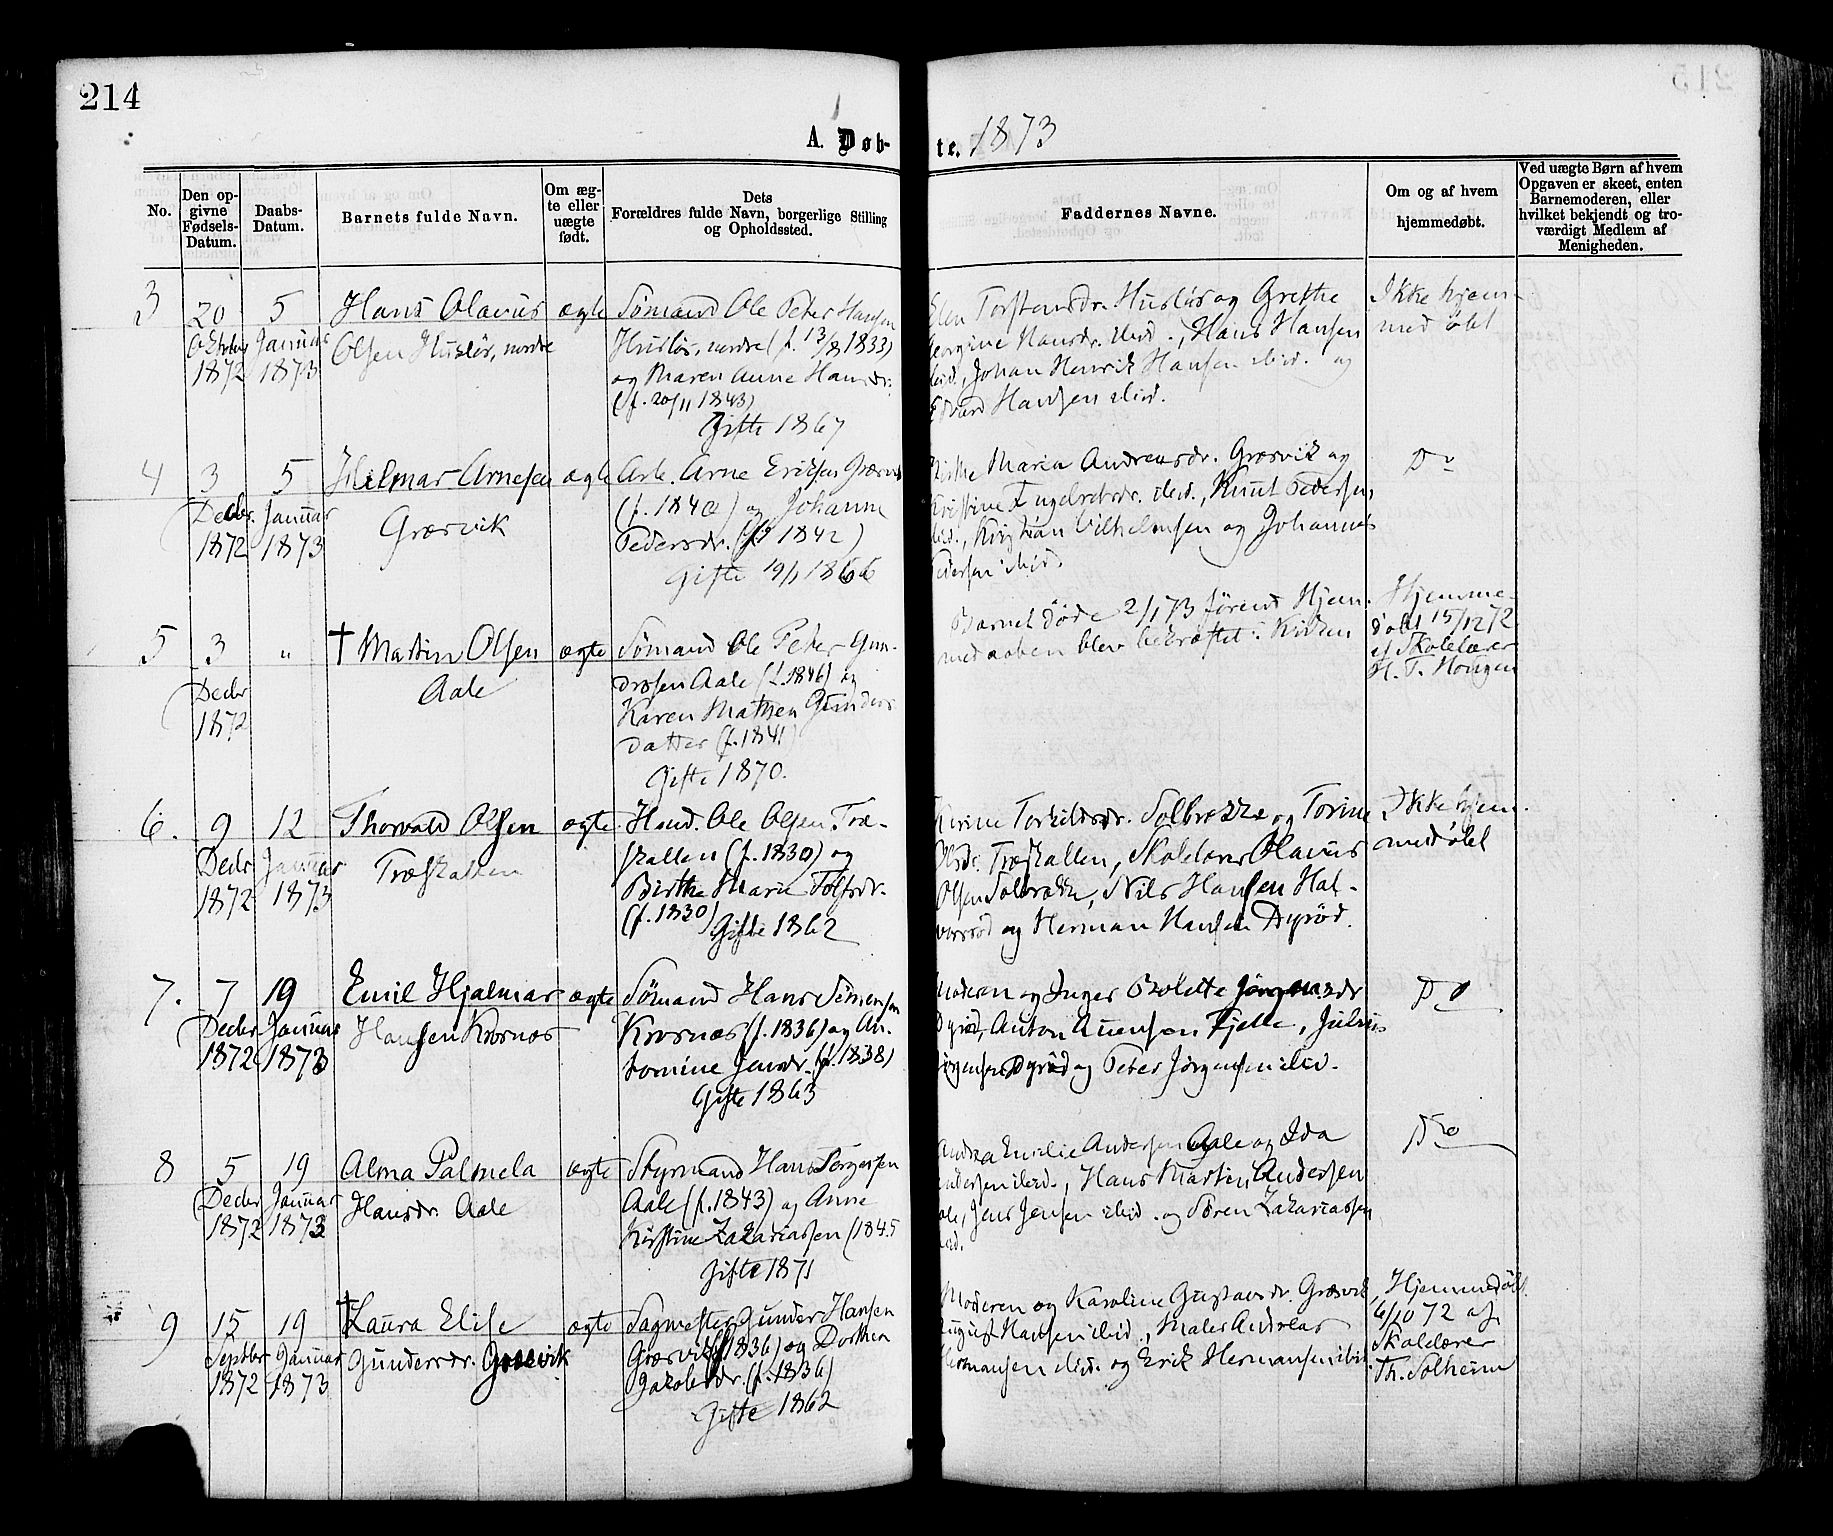 214
A. Døb-
te. 1873
No.
Den op-
givne
Fødsels-
Datum.
Daabs-
Datum.
Barnets fulde Navn.
Om æg-
te eller
uægte
født.
Dets
Forældres fulde Navn, borgerlige Stilling
og Opholdssted.
Faddernes Navne.
Om og af hvem
hjemmedøbt.
Ved uægte Børn af hvem
Opgaven er skeet, enten
Barnemoderen, eller
hvilket bekjendt og tro-
værdigt Medlem af
Menigheden.
3
20
Oktober
1872
5
Januar
1873
Hans Olavus
Olsen Husløs, nordre
ægte
Sømand Ole Peter Hansen
Husløs, nordre (f. 13/8 1833)
og Maren Anne Hansdr.
(f. 20/11 1843)
Gifte 1867
Elen Torstensdr. Husløs og Grethe
Georgine Hansdr. ibid., Hans Hansen
ibid., Johan Henrik Hansen ibid. og
Edvard Hansen ibid.
Ikke hjem-
medøbt
4
3
Decbr.
1872
5
Januar
1873
Hilmar Arnesen
Græsvik
ægte
Arb. Arne Eriksen Græsvik
(f. 1840) og Johanne
Pedersdr. (f. 1842)
Gifte 19/1 1866
Maria Andreasdr. Græsvik og
Kristine Engebretsdr. ibid., Knut Pedersen
ibid., Kristian Vilhelmsen og Johannes
Pedersen ibid.
Do
5
3
Decbr
1872
"
† Martin Olsen
Aale
ægte
Sømand Ole Peter Gun-
dersen Aale (f. 1846) og
Karen Mathea Gunders-
datter (f. 1841)
Gifte 1870.
Barnet døde 2/1 73 førend Hjem-
medaaben blev bekræftet i Kirken
Hjemme-
døbt 15/12 72
af Skolelærer
H. T. Hougen
6.
9
Decbr
1872
12
Januar
1873
Thorvald Olsen
Træskallen
ægte
Husmd. Ole Olsen Træ-
skallen (f. 1830) og
Birthe Marie Tolfsdr.
(f. 1830) Gifte 1862
Kirine Torkildsdr. Solbrække og Torine
Olsdr. Træskallen, Skolelærer Olavus
Olsen Solbrække, Nils Hansen Hal-
vorsrød og Herman Hansen Dyrød.
Ikke hjem-
medøbt
7.
7
Decbr
1872
19
Januar
1873
Emil Hjalmar
Hansen Krosnæs
ægte
Sømand Hans Simensen
Krosnæs (f. 1836) og An-
tomine Jensdr. (f. 1838)
Gifte 1863
Moderen og Inger Bolette Jørgensdr
Dyrød, Anton Evensen Fjelle, Julius
Jørgensen Dyrød og Peter Jørgensen ibid.
Do
8
5
Decbr
1872
19
Januar
1873
Alma Palmela
Hansdr. Aale
ægte
Styrmand Hans Torgersen
Aale (f. 1843) og Anne
Kirstine Zakariassen (1845
Gifte 1871
Andrea Emilie Andersen Aale og Ida
Andersen ibid., Hans Martin Andersen
Aale, Jens Jensen ibid. og Søren Zakariassen
ibid.
Do
9
15
Septbr
1872
19
Januar
1873
† Laura Elise
Gundersdr. Græsvik
ægte
Sagmester Gunder Hansen
Græsvik (f. 1836) og Dorthea
Jakobsdr. (f. 1836)
Gifte 1862
Moderen og Karoline Gustavsdr. Græsvik,
August Hansen ibid., Maler Andreas
Hermansen ibid. og Erik Hermansen ibid.
Hjemmedøbt
6/10 72 af
Skolelærer
Th. Solheim